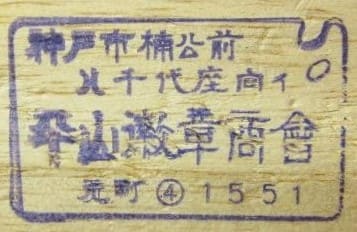 神戸市楠公前
八千代座向イ
平山徽章商會
元町④1551